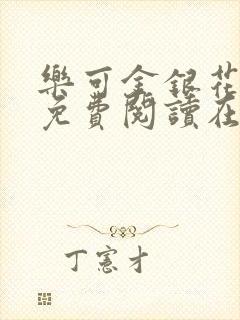 樂可金銀花
免費閱讀在
丁憲才